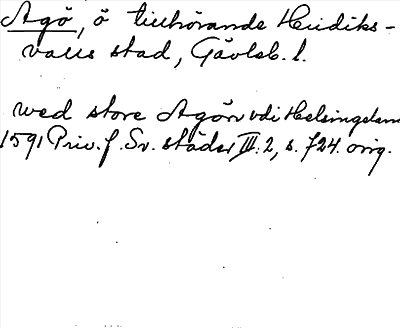 Agö, ö tillhörande Hudiks-
valls stad, Gävleb. l.
wed store Agön vdi Helsingeland
1591 Priv. f. Sv. städer III:2, s. 724. orig.